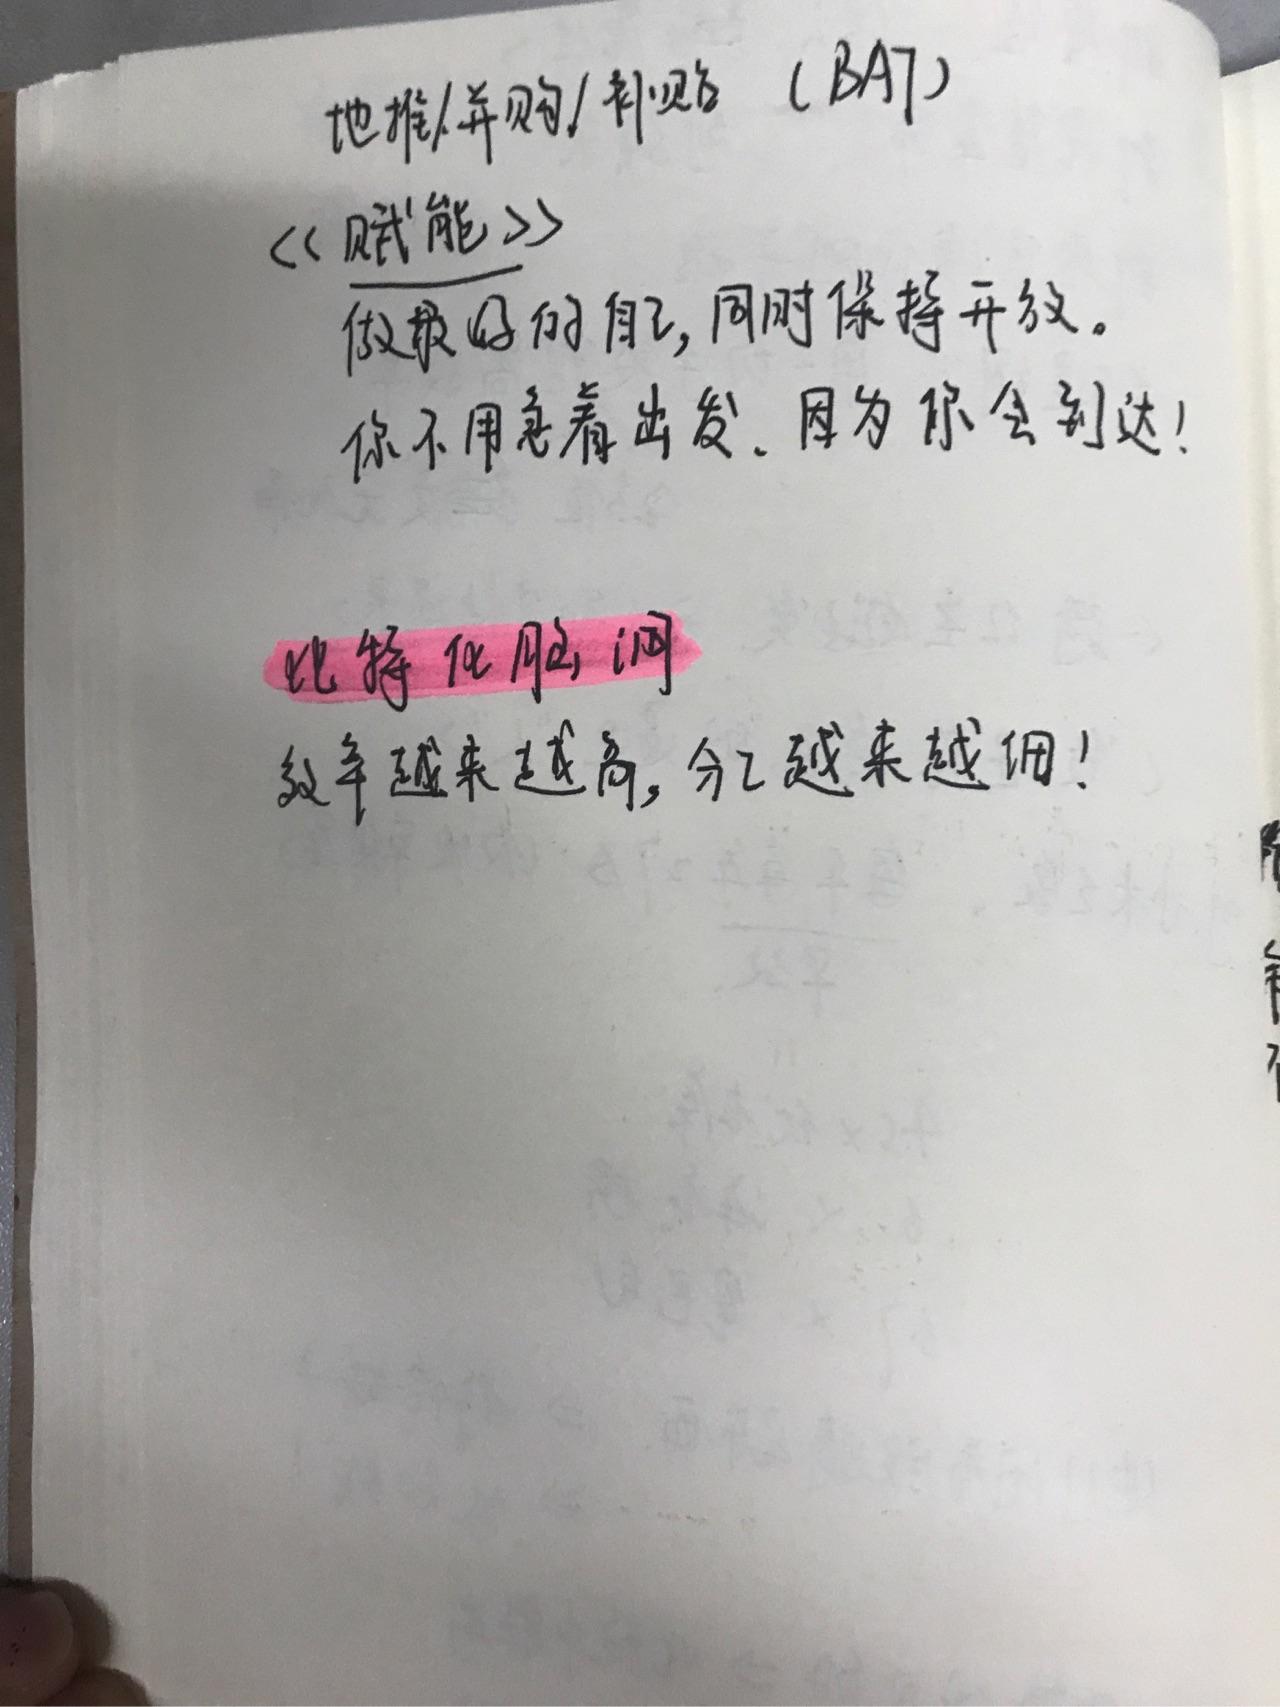 地推/并购/补贴 (BAT)
<<赋能>>
做最好的自己,同时保持开放。
你不用急着出发、因为你会到达!
比特化脑洞
效率越来越高,分工越来越细!